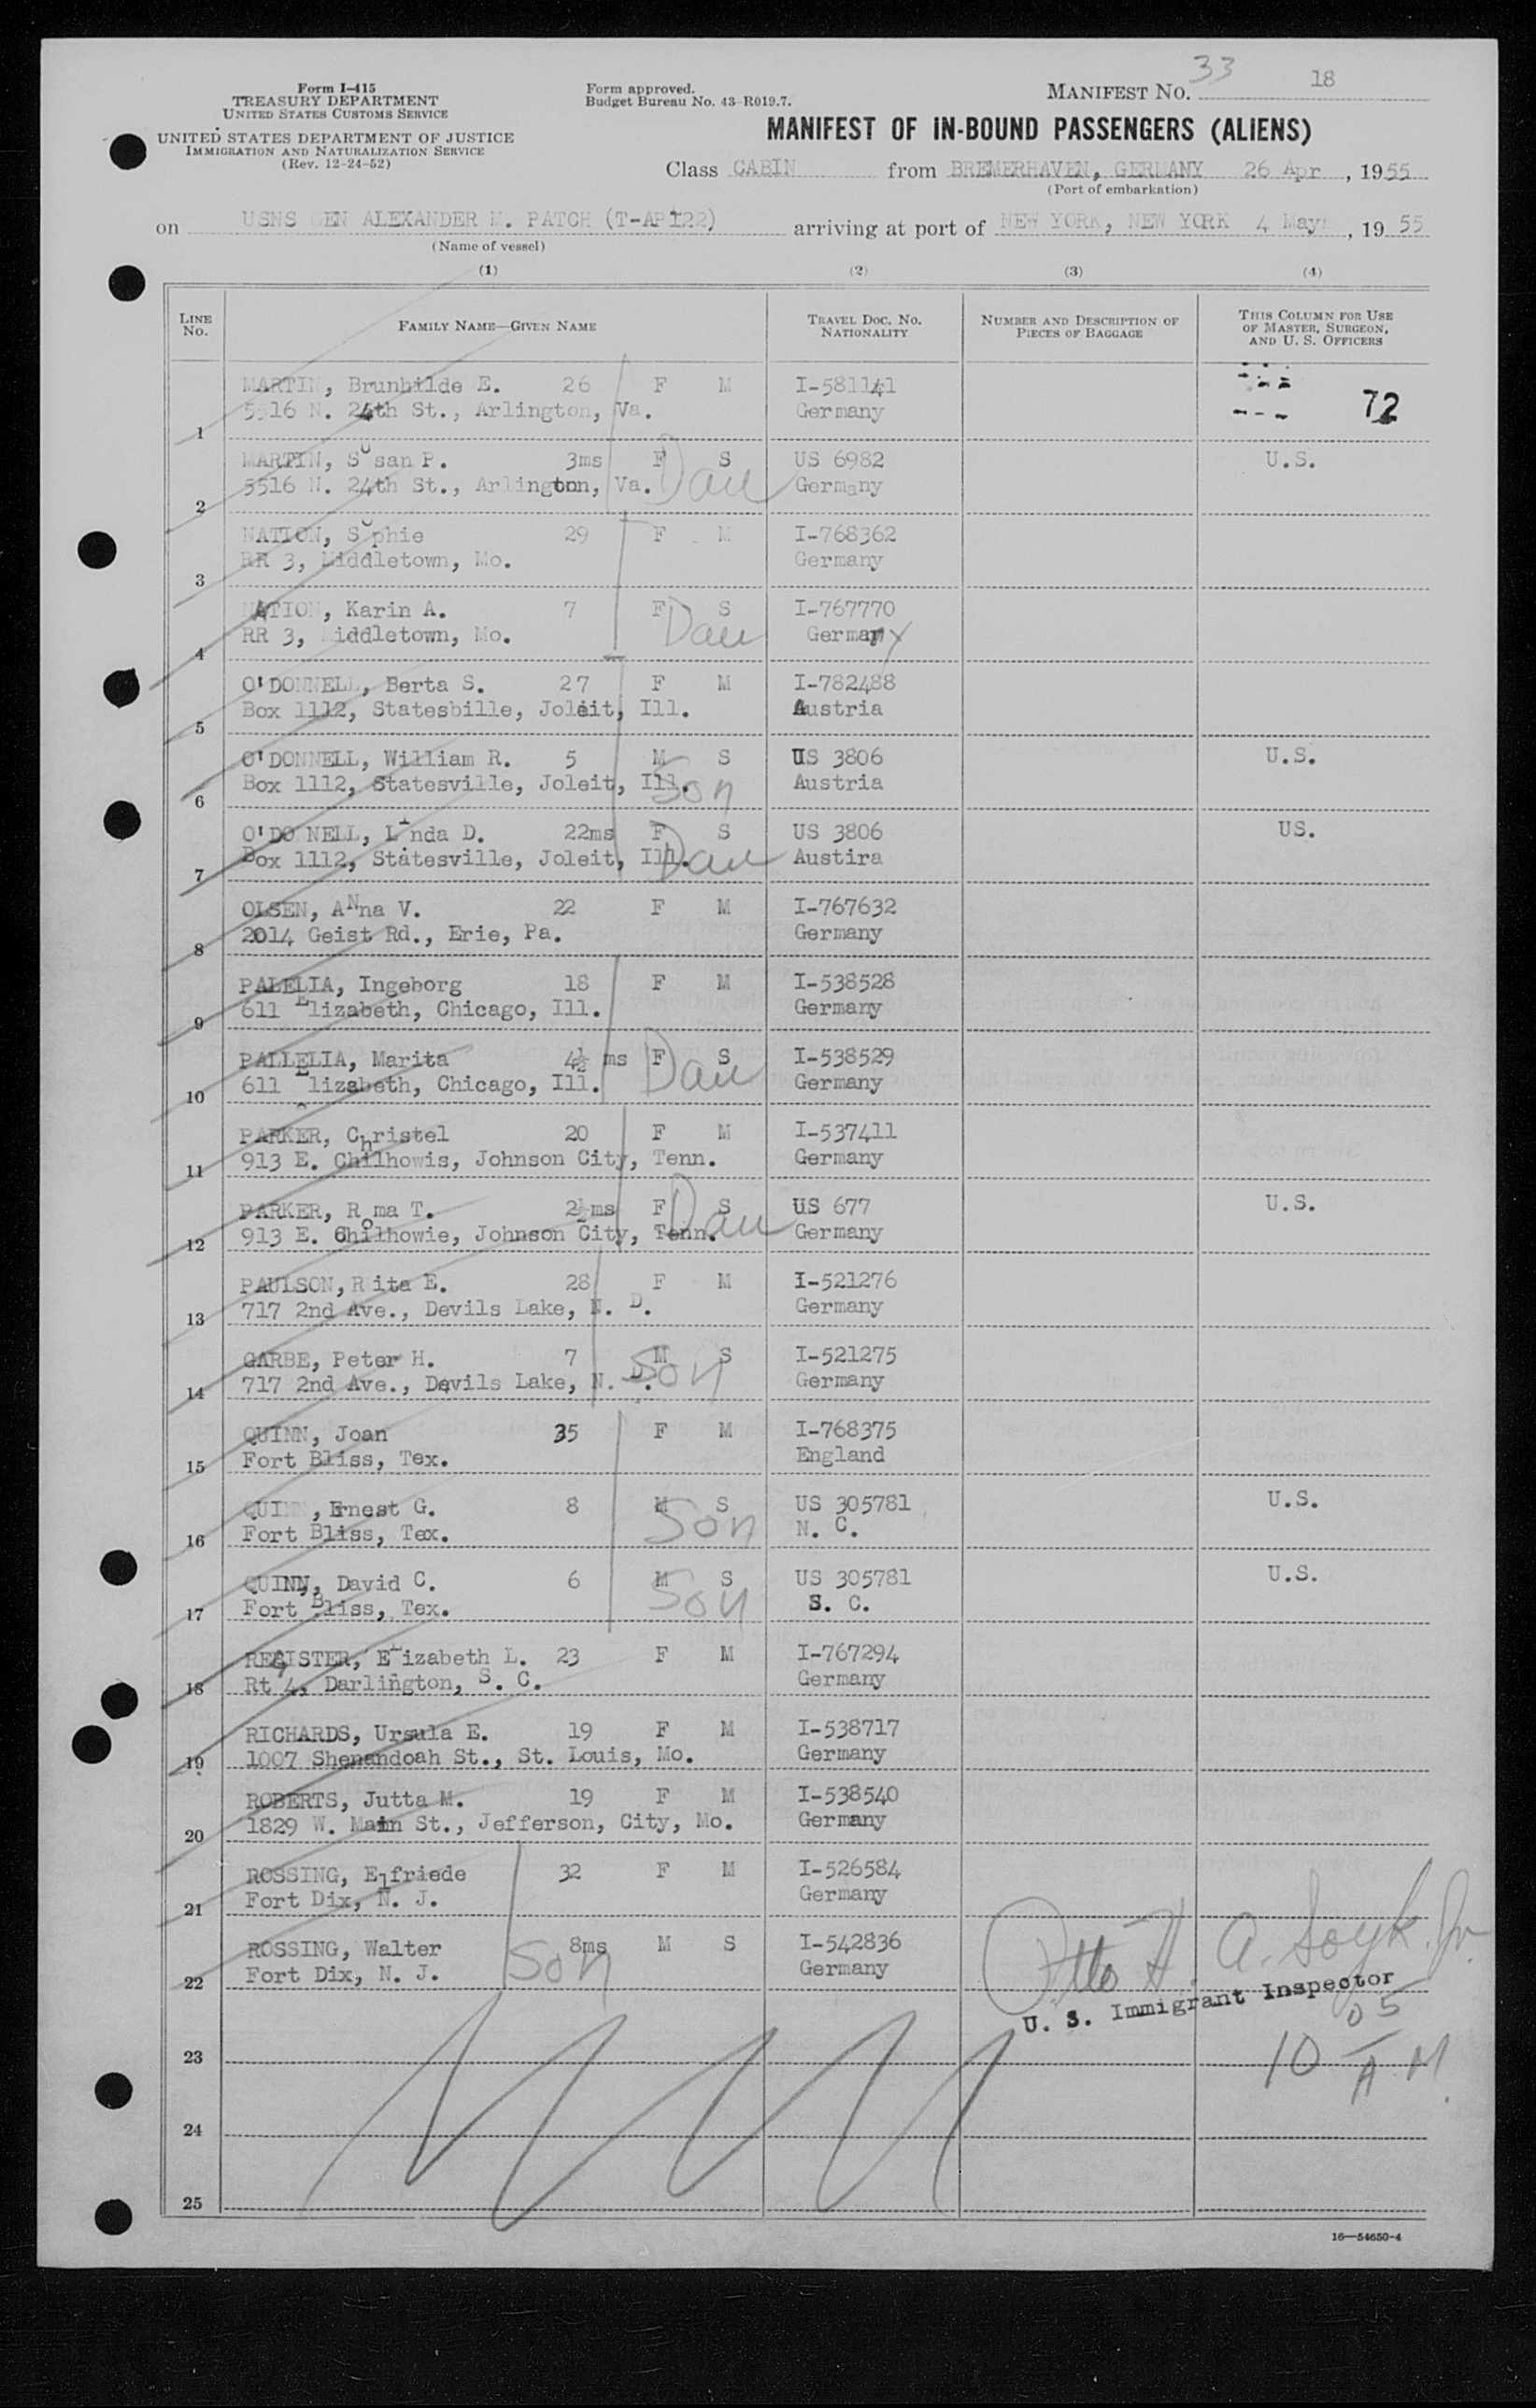 Form I-415
TREASURY DEPARTMENT
UNITED STATES CUSTOMS SERVICE
UNITED STATES DEPARTMENT OF JUSTICE
IMMIGRATION AND NATURALIZATION SERVICE
(Rev. 12-24-52)
Form approved.
Budget Bureau No. 43-R019.7.
MANIFEST NO. 33 18
MANIFEST OF IN-BOUND PASSENGERS (ALIENS)
Class CABIN from BREMERHAVEN, GERMANY 26 Apr, 1955
(Port of embarkation)
on USNS GEN ALEXANDER M. PATCH (T-AP122) arriving at port of NEW YORK, NEW YORK 4 May, 1955
(Name of vessel)
(1) (2) (3) (4)
LINE NO. FAMILY NAME—GIVEN NAME TRAVEL DOC. NO. NATIONALITY NUMBER AND DESCRIPTION OF PIECES OF BAGGAGE THIS COLUMN FOR USE OF MASTER, SURGEON, AND U. S. OFFICERS
MARTIN, Brunhilde E. 26 F M I-581141
1 5516 N. 24th St., Arlington, Va. Germany 72
MARTIN, Susan P. 3ms F S US 6982 U.S.
2 5516 N. 24th St., Arlington, Va. Dau Germany
NATION, Sophie 29 F M I-768362
3 RR 3, Middletown, Mo. Germany
NATION, Karin A. 7 F S I-767770
4 RR 3, Middletown, Mo. Dau Germany
O'DONNELL, Berta S. 27 F M I-782488
5 Box 1112, Statesbille, Joleit, Ill. Austria
O'DONNELL, William R. 5 M S US 3806 U.S.
6 Box 1112, Statesville, Joleit, Ill. Son Austria
O'DO NELL, Linda D. 22ms F S US 3806 US.
7 Box 1112, Statesville, Joleit, Ill. Dau Austira
OLSEN, ANna V. 22 F M I-767632
8 2014 Geist Rd., Erie, Pa. Germany
PALELIA, Ingeborg 18 F M I-538528
9 611 Elizabeth, Chicago, Ill. Germany
PALLELIA, Marita 4½ ms F S I-538529
10 611 Elizabeth, Chicago, Ill. Dau Germany
PARKER, Christel 20 F M I-537411
11 913 E. Chilhowis, Johnson City, Tenn. Germany
PARKER, Roma T. 2½ms F S US 677 U.S.
12 913 E. Chilhowie, Johnson City, Tenn. Dau Germany
PAULSON, Rita E. 28 F M I-521276
13 717 2nd Ave., Devils Lake, N. D. Germany
GARBE, Peter H. 7 M S I-521275
14 717 2nd Ave., Devils Lake, N. D. Son Germany
QUINN, Joan 35 F M I-768375
15 Fort Bliss, Tex. England
QUINN, Ernest G. 8 M S US 305781 U.S.
16 Fort Bliss, Tex. Son N. C.
QUINN, David C. 6 M S US 305781 U.S.
17 Fort Bliss, Tex. Son S. C.
REGISTER, Elizabeth L. 23 F M I-767294
18 Rt 4, Darlington, S. C. Germany
RICHARDS, Ursula E. 19 F M I-538717
19 1007 Shenandoah St., St. Louis, Mo. Germany
ROBERTS, Jutta M. 19 F M I-538540
20 1829 W. Main St., Jefferson, City, Mo. Germany
ROSSING, Elfriede 32 F M I-526584
21 Fort Dix, N. J. Germany
ROSSING, Walter 8ms M S I-542836
22 Fort Dix, N. J. Son Germany
Otto H. A. Soyk. Jr.
U. S. Immigrant Inspector
10 05 A M.
23
24
25
16—54650-4